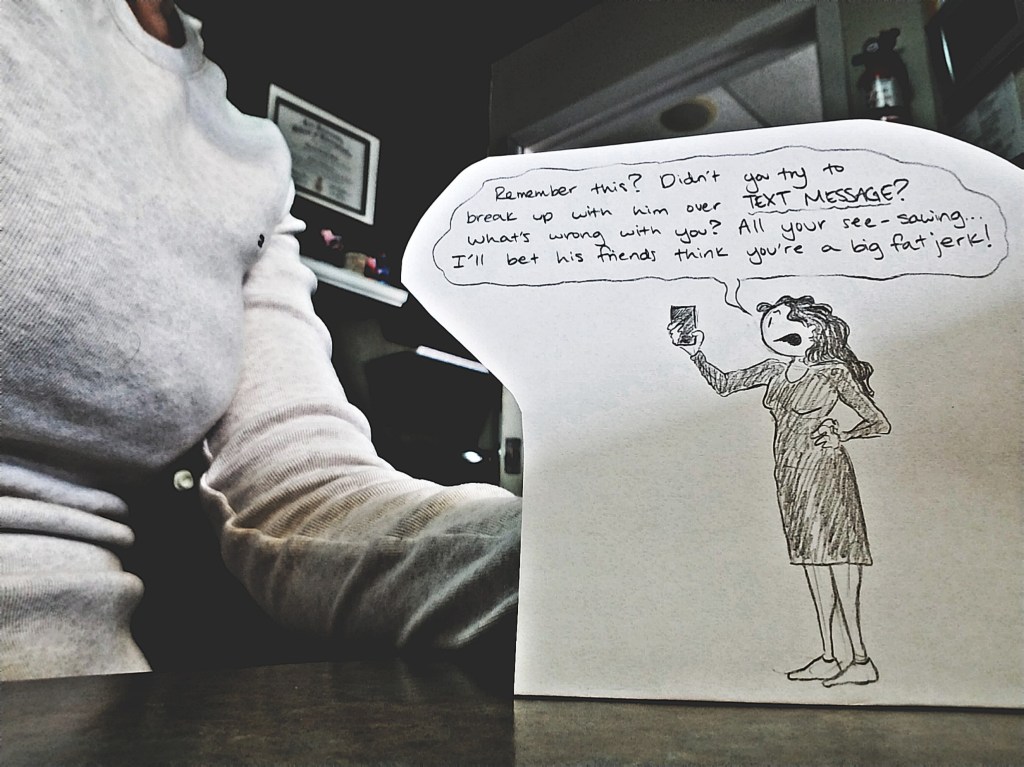 Remember this? Didn't you try to
break up with him over TEXT MESSAGE?
What's wrong with you? All your see-sawing...
I'll bet his friends think you're a big fat jerk!